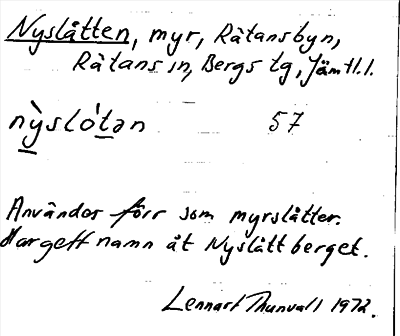 Nyslåtten, myr, Råtansbyn,
Råtans sn, Bergs tg, Jämtl. l.
nỳslo̍tən 57
Användes förr som myrslåtter.
Har gett namn åt Nyslåttberget.
Lennart Thunvall 1972.